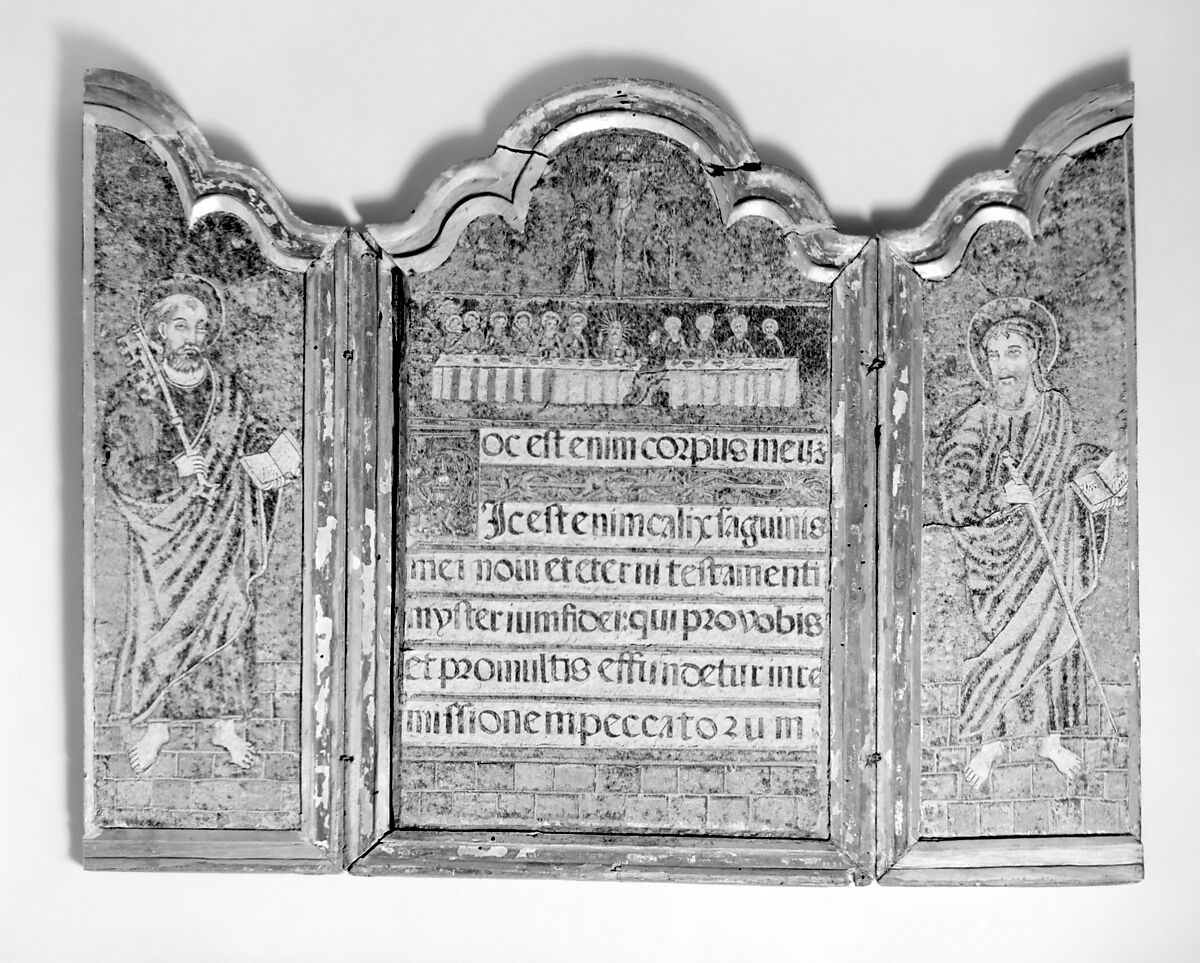 Hoc est enim corpus meuz
Ic est enim calix saguinis
mei noui et eterni testamenti
mysterium fidei: qui pro vobis
et pro multis effundetur in re
missionem peccatorum